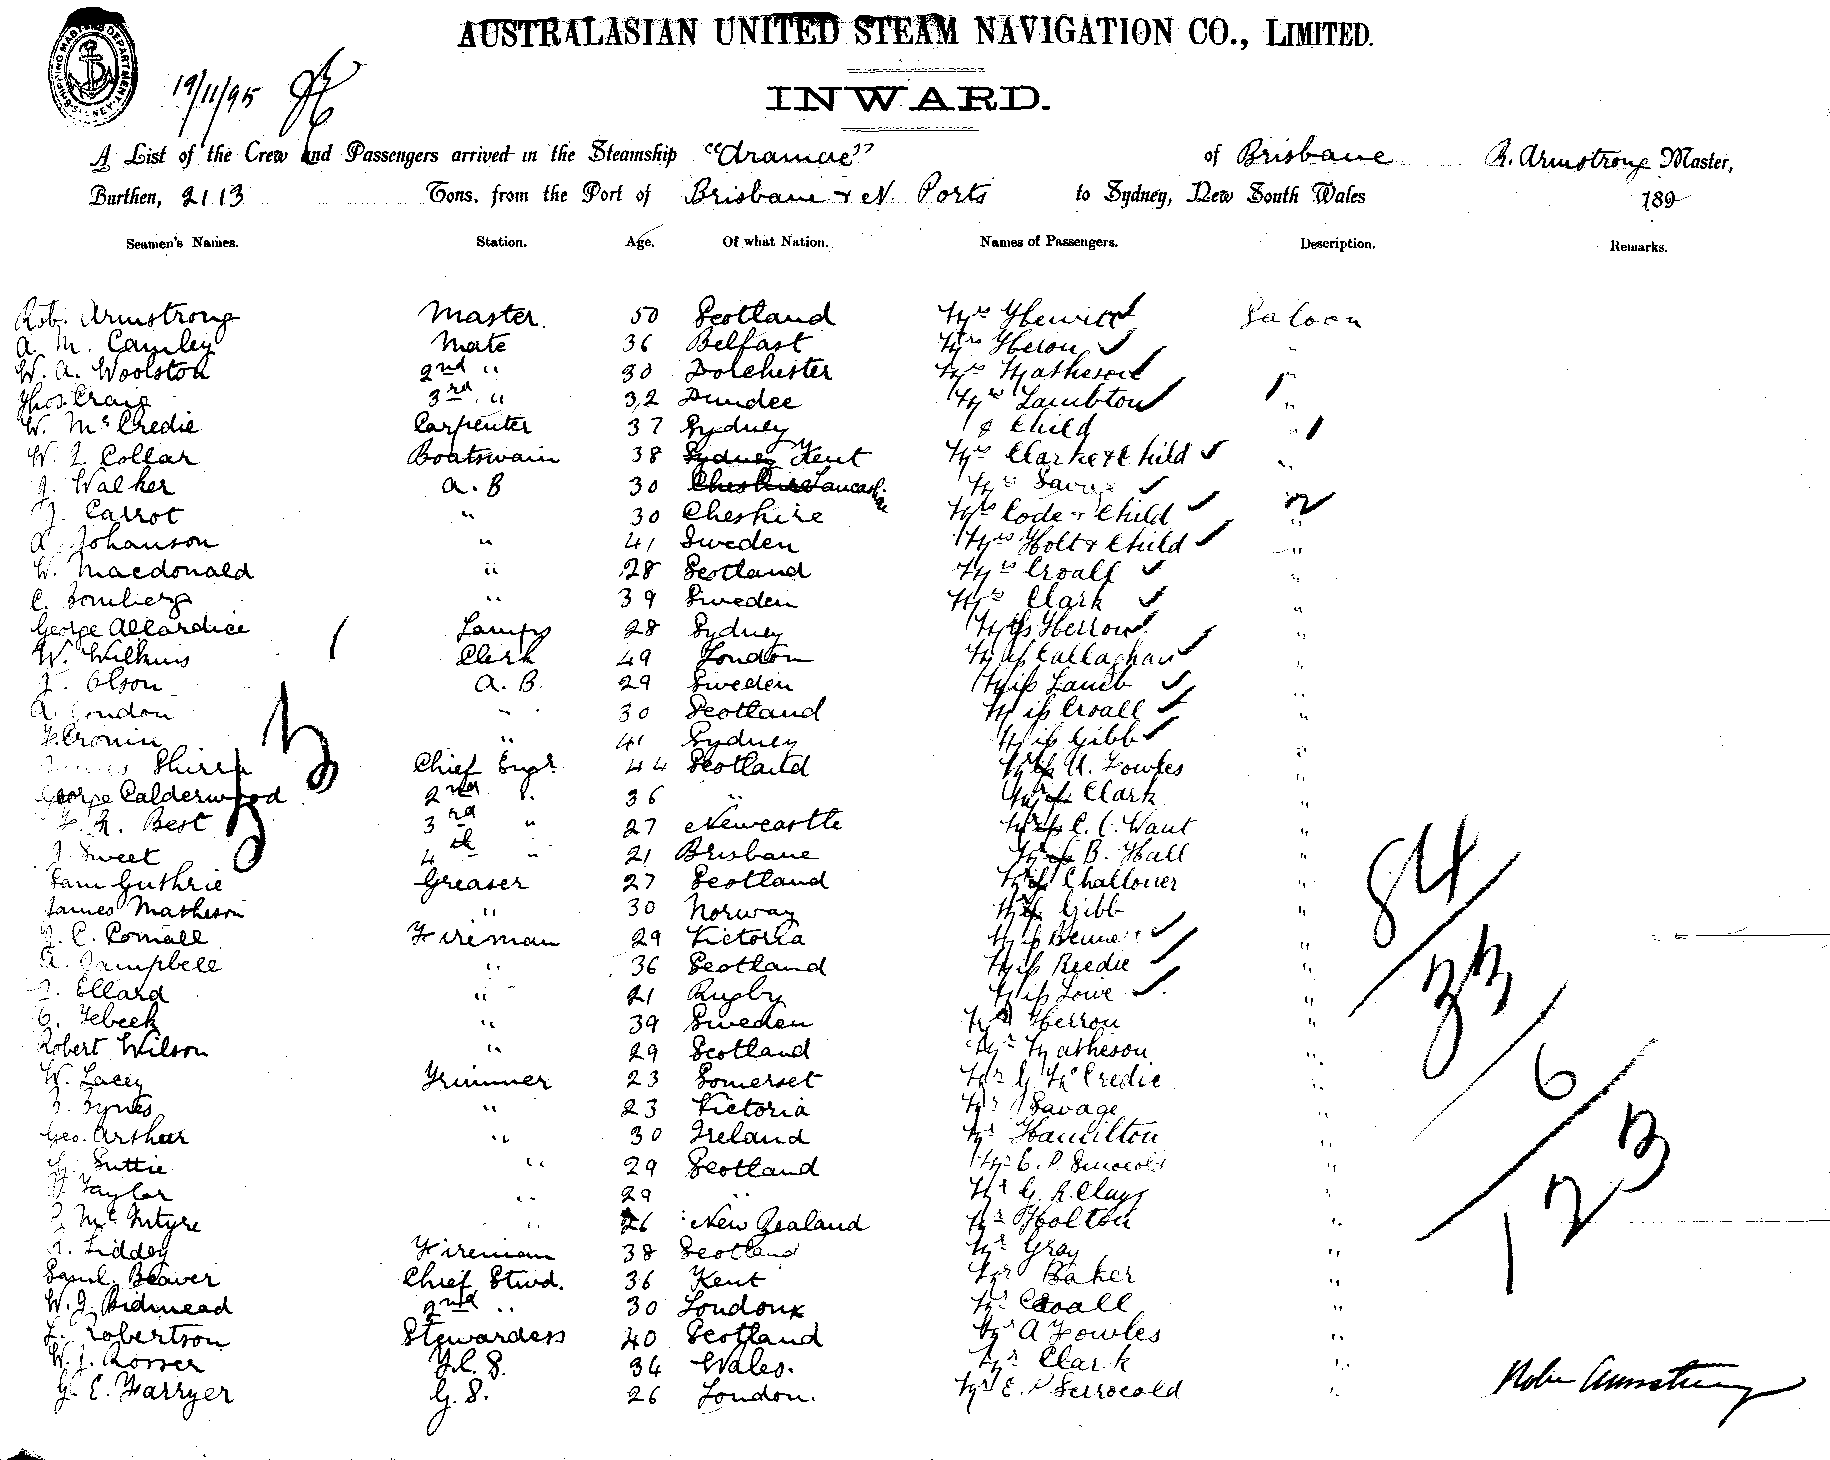 AUSTRALASIAN UNITED STEAM NAVIGATION CO., LIMITED.
19/11/95
INWARD.
A List of the Crew and Passengers arrived in the Steamship "Aramac" of Brisbane R. Armstrong Master,
Burthen, 2113 Tons, from the Port of Brisbane + N. Ports to Sydney, New South Wales 189
Seamen's Names. Station. Age. Of what Nation. Names of Passengers. Description. Remarks.
Robt. Armstrong Master. 50 Scotland Mrs Hewitt Saloon
A. M. Camley Mate 36 Belfast Mrs Heron "
W. A. Woolston 2nd " 30 Dorchester Mrs Matheson
Thos. Craig 3rd " 32 Dundee Mrs Lambton "
W. McCredie Carpenter 37 Sydney & Child "
W. J. Collar Boatswain 38 Sydney Kent Mrs Clarke & Child "
J. Walker A. B 30 Cheshire Lancashire Mrs Savage
J. Carrot " 30 Cheshire Mrs Code + Child 2 "
A. Johanson " 41 Sweden Mrs Holt + Child "
W. Macdonald " 28 Scotland Mrs Croall "
C. " 39 Sweden Mrs Clark "
George Allardice Lamps 28 Sydney Miss Herron "
W. Wilkins Clerk 49 London Miss Callaghan "
J. Olson A. B. 29 Sweden Miss Lamb "
A. London " 30 Scotland Miss Croall "
Cronin " 41 Sydney Miss Gibb "
Shirra Chief Engr. 44 Scotland U. Fowles "
George Calderwood 2nd " 36 " Clark "
Best 3rd " 27 Newcastle C. C. Want "
J. Sweet 4th " 21 Brisbane B. Hall "
Sam Guthrie Greaser 27 Scotland Challoner "
James Matheson " 30 Norway Gibb "
J. C. Fireman 29 Victoria Miss "
A. Campbell " 36 Scotland Miss Reedie "
J. Ellard " 21 Rugby Miss Lowe "
C. " 39 Sweden Mr Herron "
Robert Wilson " 29 Scotland Mr Matheson "
W. Lacey Trimmer 23 Somerset Mr G McCredie "
" 23 Victoria Mr Savage "
Geo. Arthur " 30 Ireland Mr Hamilton "
Suttie " 29 Scotland Mr "
Taylor " 29 " Mr G. R. Clays "
McIntyre " 26 New Zealand Mr Holton "
Liddey Fireman 38 Scotland Mr Gray "
Saml. Beaver Chief Stwd. 36 Kent Mr Baker "
W. J. Bidmead 2nd " 30 London Mr Croall "
Robertson Stewardess 40 Scotland Mr A Fowles "
W. J. Rosser F.C.S. 34 Wales. Mr Clark "
G. E. Farryer G. S. 26 London. Mr E. P Serrocold "
84
33
6
123
Robt Armstrong